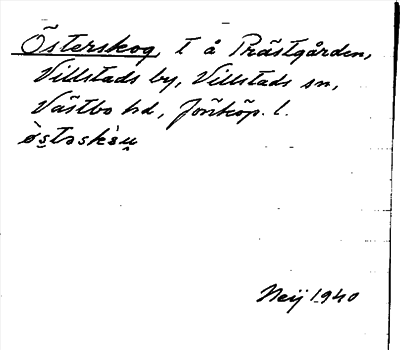 Österskog, t å Prästgården,
Villstads by, Villstads sn,
Västbo hd, Jönköp. l.
ø̀s̬təskɜ̀u̬
Neij 1940